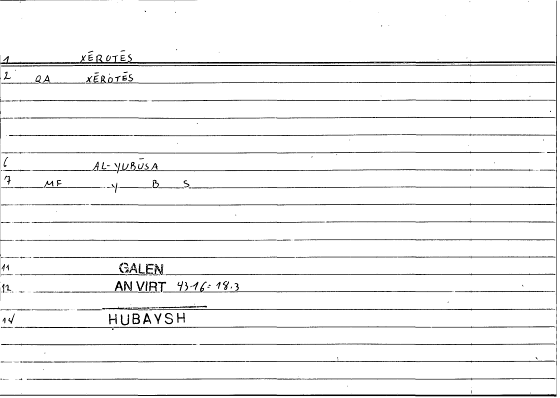 1 XĒROTĒS
2 QA XĒROTĒS
6 AL-YUBŪSA
7 MF Y B S
11 GALEN
12 AN VIRT 43.16 = 18.3
14 HUBAYSH